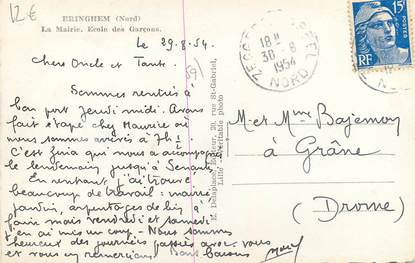 12€
ERINGHEM (Nord)
La Mairie. Ecole des Garçons.
le 29.8.54
59
Chers Oncle et Tante.
Sommes rentrés à
bon port Jeudi midi. Avons
fait étape chez Maurice où
nous sommes arrivés à 7h½
C'est qui nous a accompagné
le lendemain jusqu'à
En rentrant j'ai trouvé
beaucoup de travail : mairie
jardin, arpentages de lin à
faire mais vendredi et samedi
j'en ai mis un coup - Nous sommes
heureux des journées passées avec vous
et vous en remercions Bons baisers
M. Delaplace, Editeur, 20, rue St-Gabriel,
Lille Véritable photo
ZEGGERS
18 H
30-8
1954
NORD
15F
RF
NORD
M. et Mme Bajemon
à Grâne
(Drome)